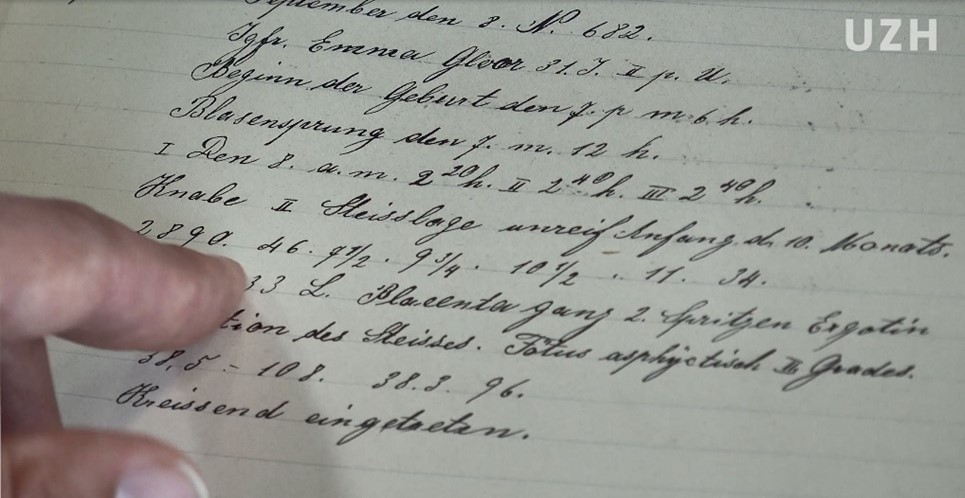 September den 8. N. 682.
UZH
Igfr. Emma Gloor 31. J. II p. U.
Beginn der Geburt den 7. p m 6 h.
Blasensprung den 7. m. 12 h.
I Den 8. a. m. 2 20 h. II 2 40 h. III 2 40 h.
Knabe II Steisslage unreif Anfang d. 10. Monats.
2890. 46. 7 1/2. 9 3/4. 10 1/2. 11. 34.
33 L. Placenta ganz 2. Spritzen Ergotin
tion des Steisses. Fötus asphyctisch II. Grades.
38,5 - 108. 38.3. 96.
Kreissend eingetreten.